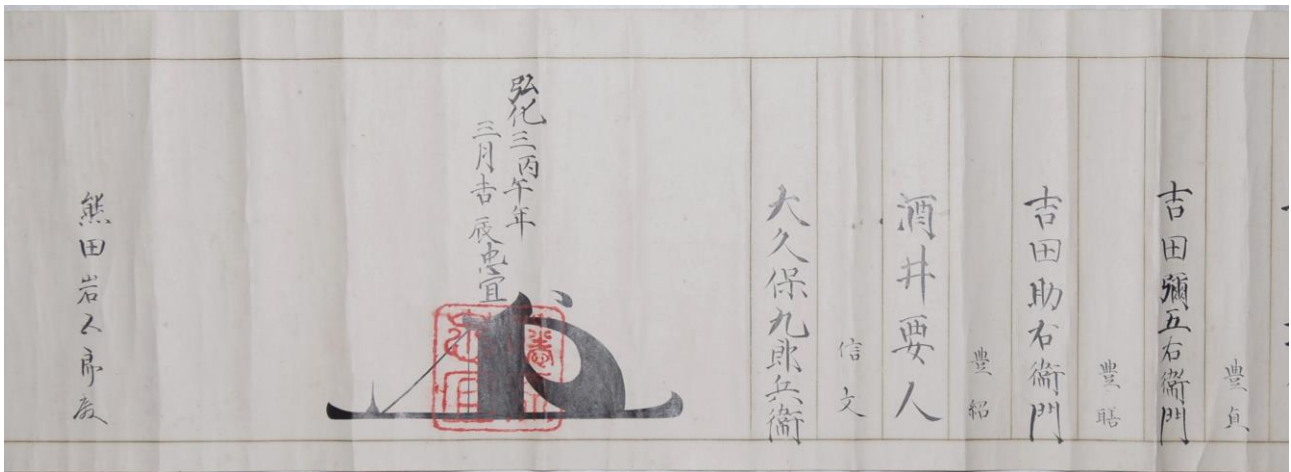 豊貞
吉田彌五右衞門
豊膳
吉田助右衞門
豊紹
酒井要人
信文
大久保九郎兵衞
弘化三丙午年
三月吉辰忠宜
熊田岩人郎殿